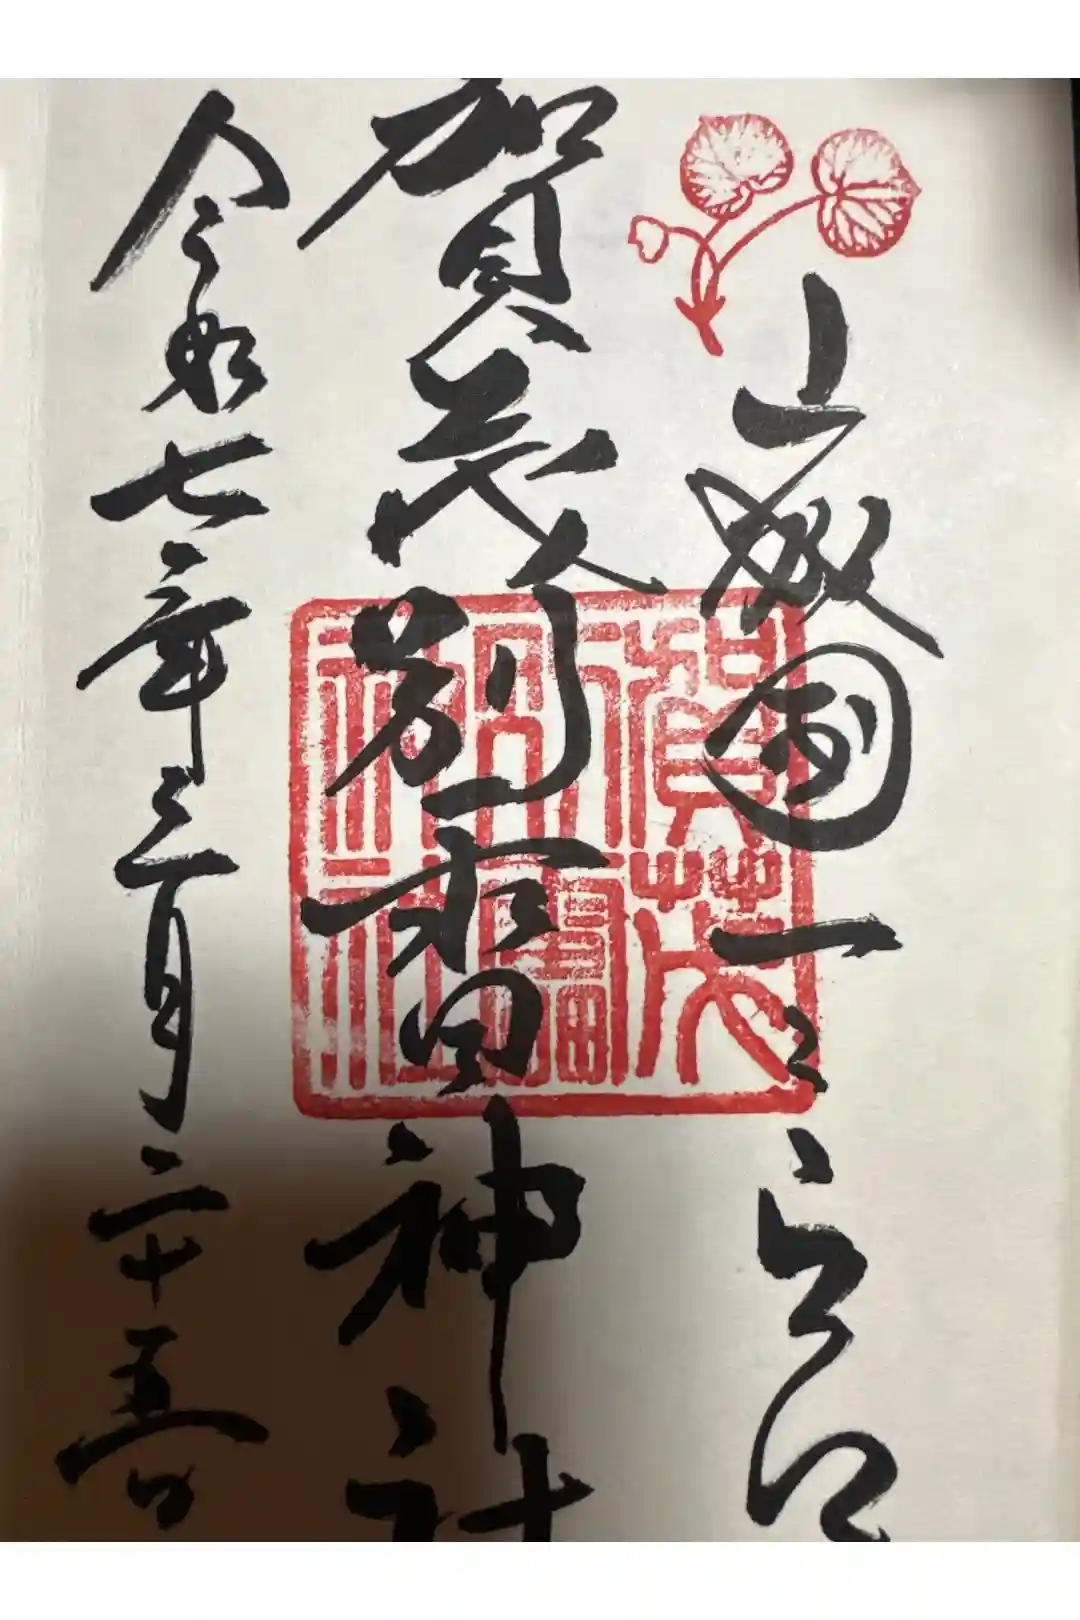 山城国一之宮
賀茂別雷神社
令和七年三月二十五日
賀茂
別雷
神社